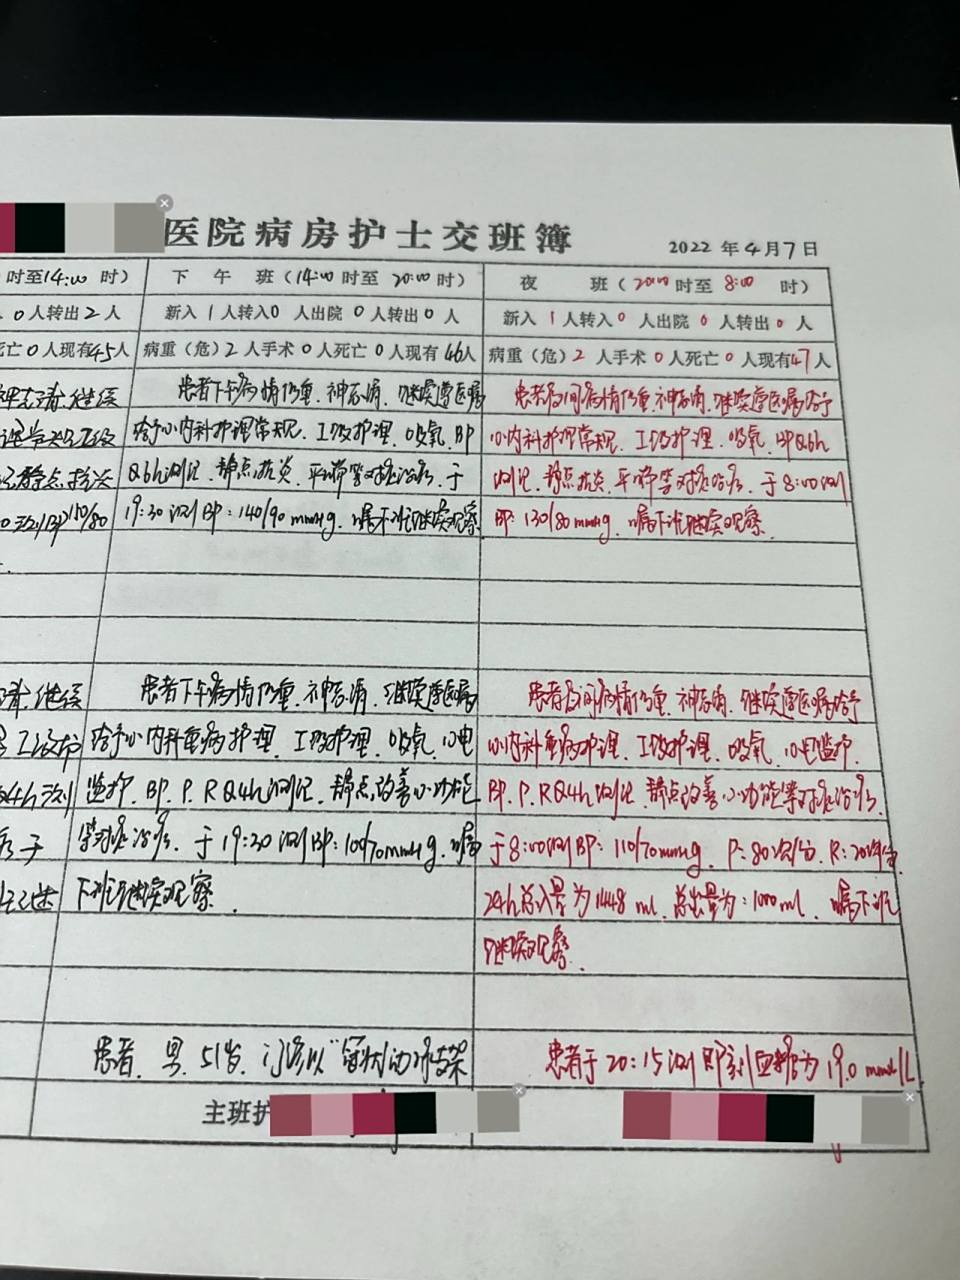 医院病房护士交班簿
2022 年 4 月 7 日
时至14:00 时)
下 午 班(14:00 时至 20:00 时)
夜 班(20:00 时至 8:00 时)
0人转出2人
新入 1 人转入0 人出院 0 人转出0 人
新入 1 人转入0 人出院 0 人转出0 人
死亡0人现有45人
病重(危)2 人手术 0 人死亡 0 人现有 46人
病重(危)2 人手术 0 人死亡 0 人现有47人
神志清.继续
患者下午病情仍重.神志清.继续遵医嘱
患者夜间病情仍重.神志清.继续遵医嘱给予
给予心内科护理常规.I级护理.吸氧.BP
心内科护理常规.I级护理.吸氧.BPQ6h
静点抗炎
Q6h测记.静点抗炎.平喘等对症治疗.于
测记.静点抗炎.平喘等对症治疗.于8:00测
测BP150/80
19:30测BP:140/90mmHg.嘱下班继续观察
BP:130/80mmHg.嘱下班继续观察.
清.继续
患者下午病情仍重.神志清.继续遵医嘱
患者夜间病情仍重.神志清.继续遵医嘱给予
I级护
给予心内科重病护理.I级护理.吸氧.心电
心内科重病护理.I级护理.吸氧.心电监护.
Q4h测
监护.BP.P.RQ4h测记.静点改善心功能
BP.P.RQ4h测记.静点改善心功能等对症治疗.
于
等对症治疗.于19:30测BP:100/70mmHg.嘱
于8:00测BP:110/70mmHg.P:80次/分.R:20次/分
下班继续观察.
24h总入量为1448ml.总出量为:1000ml.嘱下班
继续观察.
患者.男.51岁.门诊以"冠状动脉支架
患者于20:15测即刻血糖为19.0mmol/L
主班护